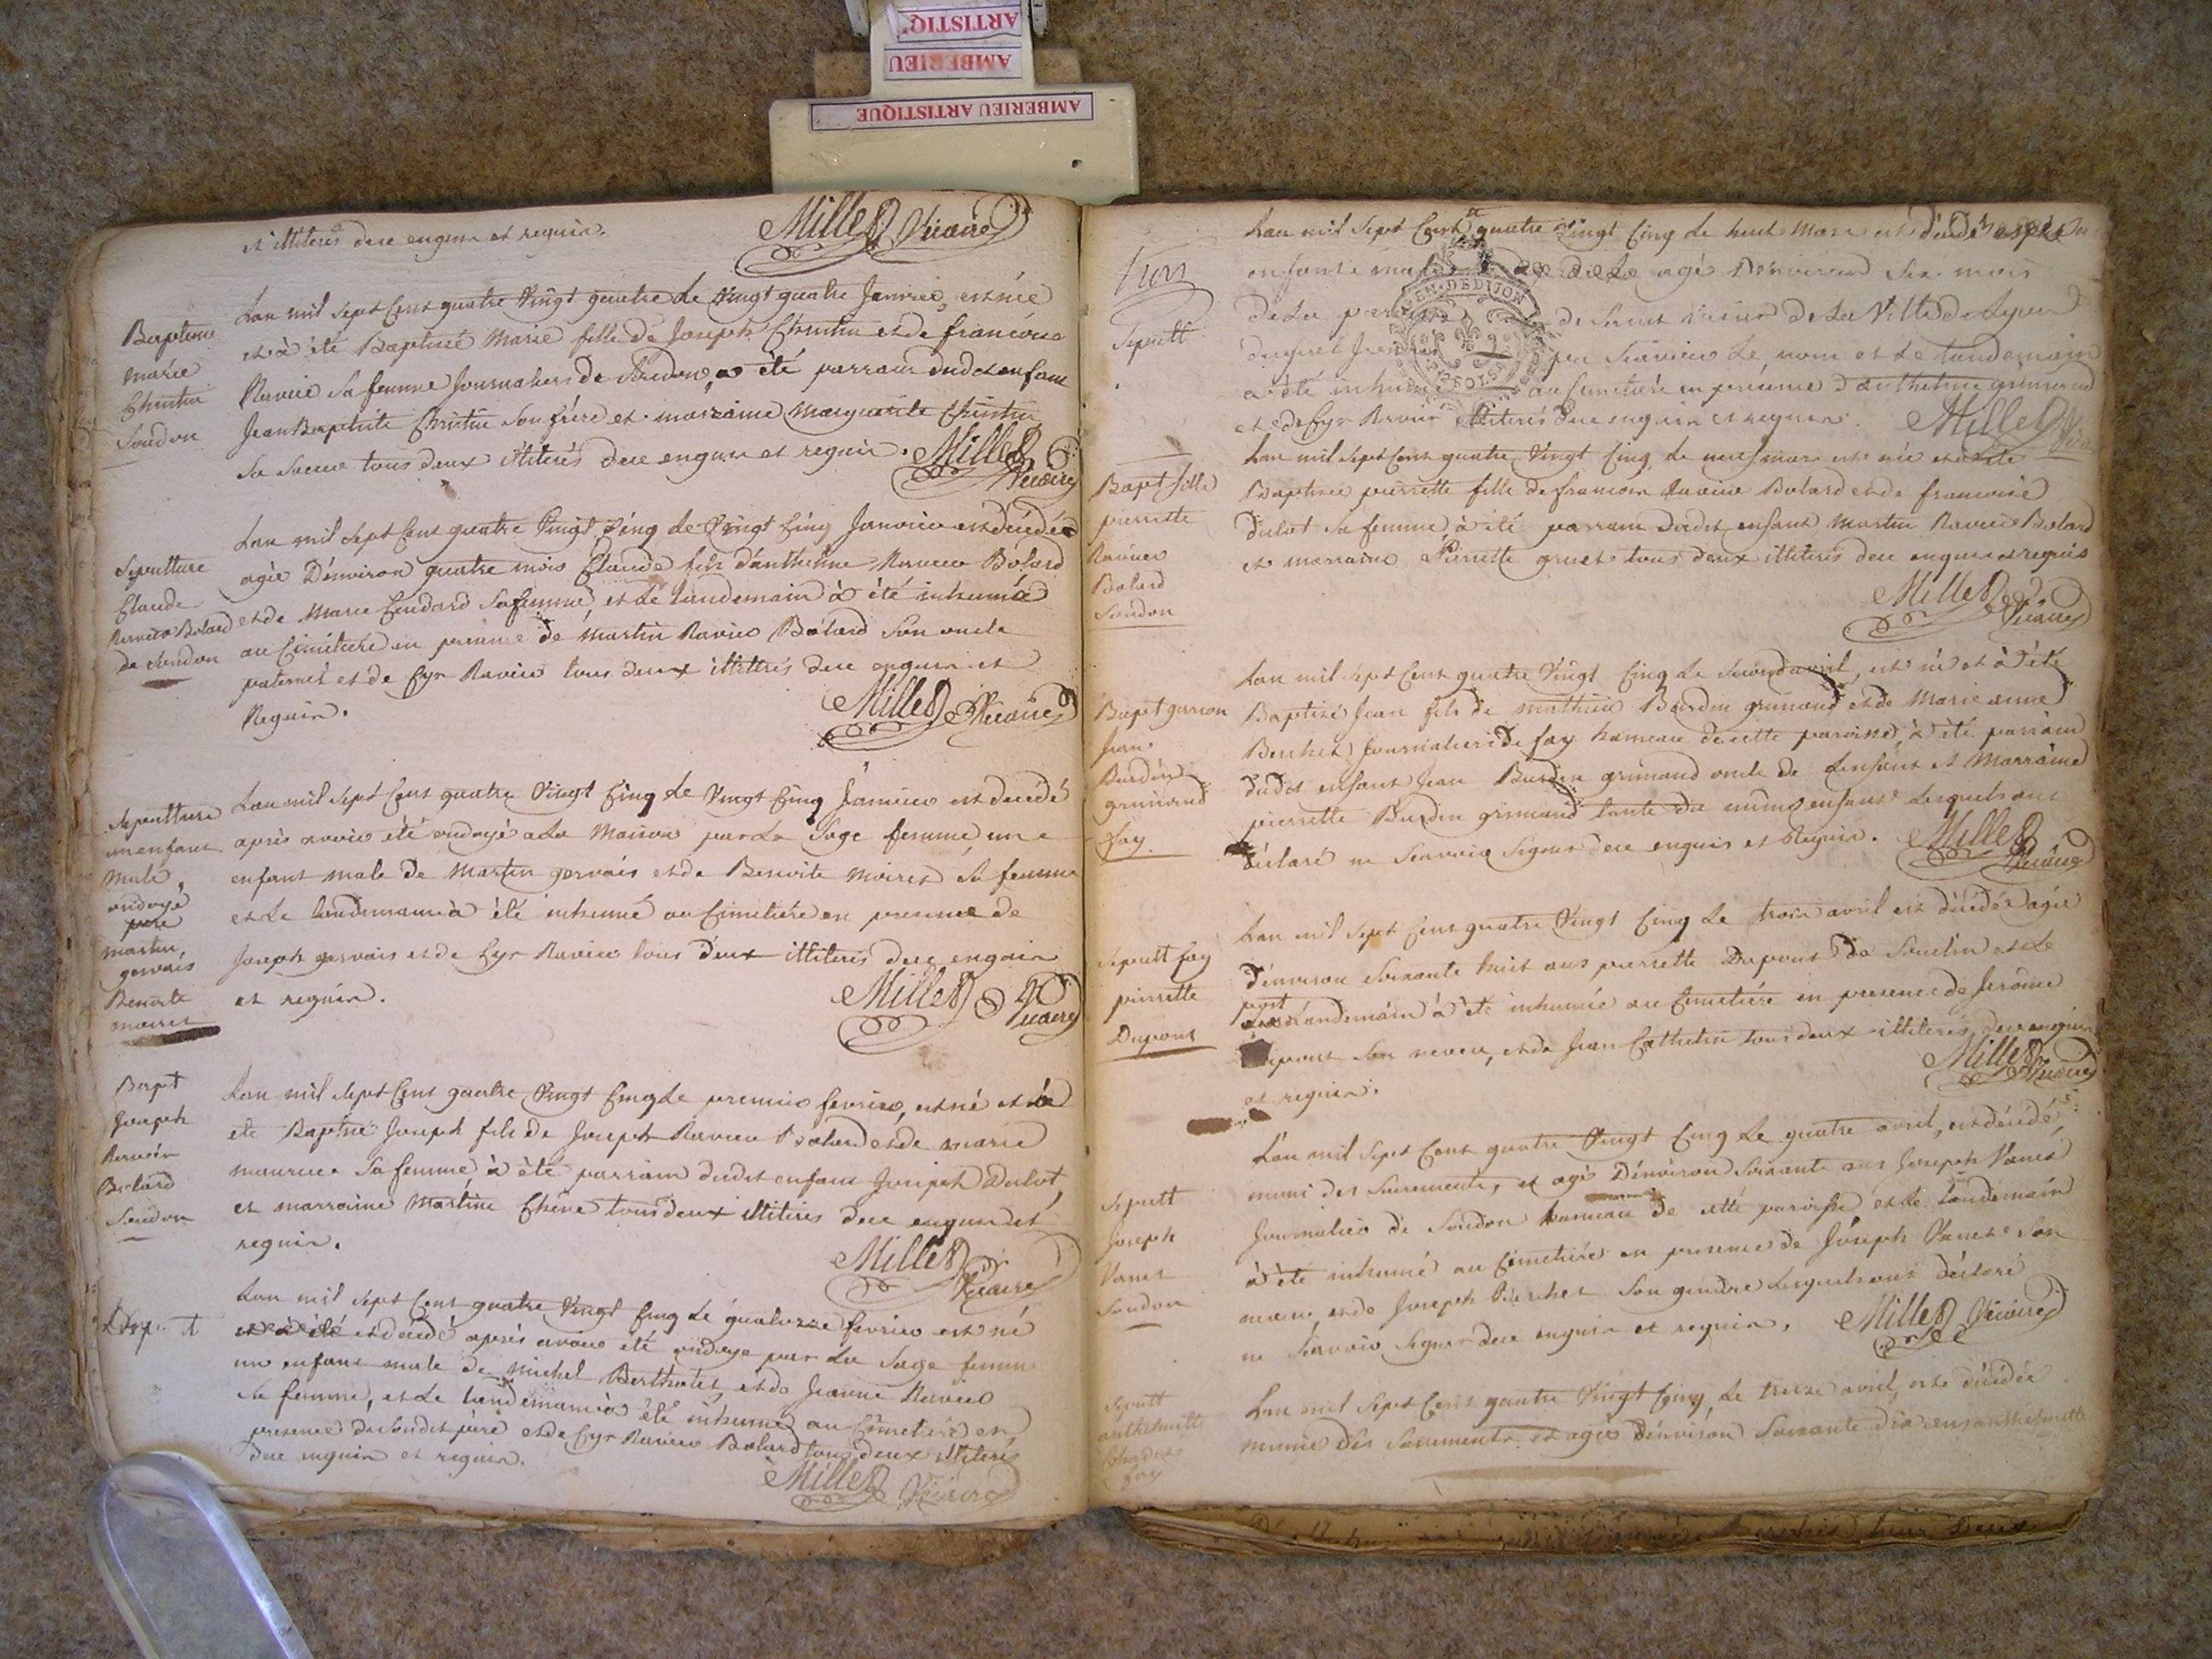 ARTISTIQ
AMBERIEU
AMBERIEU ARTISTIQUE
et illiterés de ce enquis et requis. Millet Vicaire
Bapteme
marie
Christin
Soudon
Lan mil sept cent quatre Vingt quatre le Vingt quatre Janvier, est née
et à été Baptisée Marie fille de Joseph Christin et de francoise
Ravier sa femme Journaliers de Soudon, a été parrain dudit enfant
Jean Baptiste Christin son frère et marraine Marguerite Christin
sa soeur tous deux illiterés de ce enquis et requis. Millet
Vicaire
Sepulture
Claude
Ravier Bolard
de Soudon
Lan mil sept cent quatre Vingt Cinq le Vingt Cinq Janvier est décédé
agée D'environ quatre mois Claude fils d'anthelme Ravier Bolard
et de Marie sa femme, et le landemain à été inhumé
au Cimetiere en presence de Martin Ravier Bolard son oncle
paternel et de Cyr Ravier tous deux illitérés de ce enquis et
Requis. Millet Vicaire
Sepulture
un enfant
male
ondoyé
père
martin
gervais
Benoite
moiret
Lan mil sept cent quatre Vingt Cinq le Vingt Cinq Janvier est decédé
après avoir été ondoyé a la Maison par la Sage femme, un
enfant male de Martin gervais et de Benoite moiret sa femme
et le landemain à été inhumé au Cimetiére en presence de
Joseph gervais et de Cyr Ravier tous deux illiterés de ce enquis
et requis. Millet Vicaire
Bapt
Joseph
Ravier
Bolard
Soudon
Lan mil sept cent quatre Vingt Cinq le premier fevrier, est né et a
été Baptisé Joseph fils de Joseph Ravier Bolard et de marie
sa femme, à été parrain dudit enfant Joseph Dulot,
et marraine Martine Chêne tous deux illiterés de ce enquis et
requis. Millet
Vicaire
Lan mil sept cent quatre Vingt Cinq le quatorze fevrier est né
et à été et décédé après avoir été ondoyé par la Sage femme
un enfant male de Michel Bertholet et de Jeanne Ravier
sa femme, et le landemain à été inhumé au Cimetiére en
presence dudit père et de Cyr Ravier Bolard tous deux illiterés
de ce enquis et requis. Millet Vicaire
Sepult
Lan mil sept Cent quatre Vingt Cinq le huit Mars est décédé
enfant male agé D'environ six mois
de la de la Ville de Lyon
GEN. DE DIJON
le nom et le landemain
a été inhumé au Cimetiére en présence d'anthelme grimand
et de Cyr Ravier illiterés de ce enquis et requis. Millet
Bapt fille
pierrette
Ravier
Bolard
Soudon
Lan mil sept Cent quatre Vingt Cinq le neuf mars est née et a été
Baptisée pierrette fille de francois Ravier Bolard et de francoise
Dulot sa femme, à été parrain dudit enfant Martin Ravier Bolard
et marraine Pierrette gruet tous deux illiterés de ce enquis et requis
Millet
Vicaire
Bapt garcon
Jean
Burdin
grimand
fay
Lan mil sept cent quatre Vingt Cinq le second avril, est né et à été
Baptizé Jean fils de mathieu Burdin grimand et de Marie anne
Berchet Journaliers de fay hameau de cette paroisse, à été parrain
dudit enfant Jean Burdin grimand oncle de l'enfant et Marraine
pierrette Burdin grimand tante du même enfant lesquels ont
déclaré ne Scavoir Signer de ce enquis et Requis. Millet
Vicaire
Sepult fay
pierrette
Dupont
Lan mil sept Cent quatre Vingt Cinq le trois avril est décédée agée
d'environ soixante huit ans pierrette Dupont de Souclin et le
landemain à été inhumée au Cimetiére en presence de Jerôme
Dupont son neveu, et de Jean Cathelin tous deux illiterés, de ce enquis
et requis. Millet
Vicaire
Sepult
Joseph
Vanet
Soudon
L'an mil sept Cent quatre Vingt Cinq le quatre avril, est décédé,
muni des Sacrements, et agé D'environ Soixante ans Joseph Vanet
Journalier de Soudon hameau de cette paroisse et le landemain
à été inhumé au Cimetiére en presence de Joseph Vanet son
neveu, et de Joseph Berchet son gendre lesquels ont déclaré
ne Scavoir Signer de ce enquis et requis. Millet Vicaire
Sepult
anthelmette
fay
Lan mil sept Cent quatre Vingt Cinq, le treize avril, est décédée
munie des Sacrements et agée d'environ Soixante dix ans anthelmette